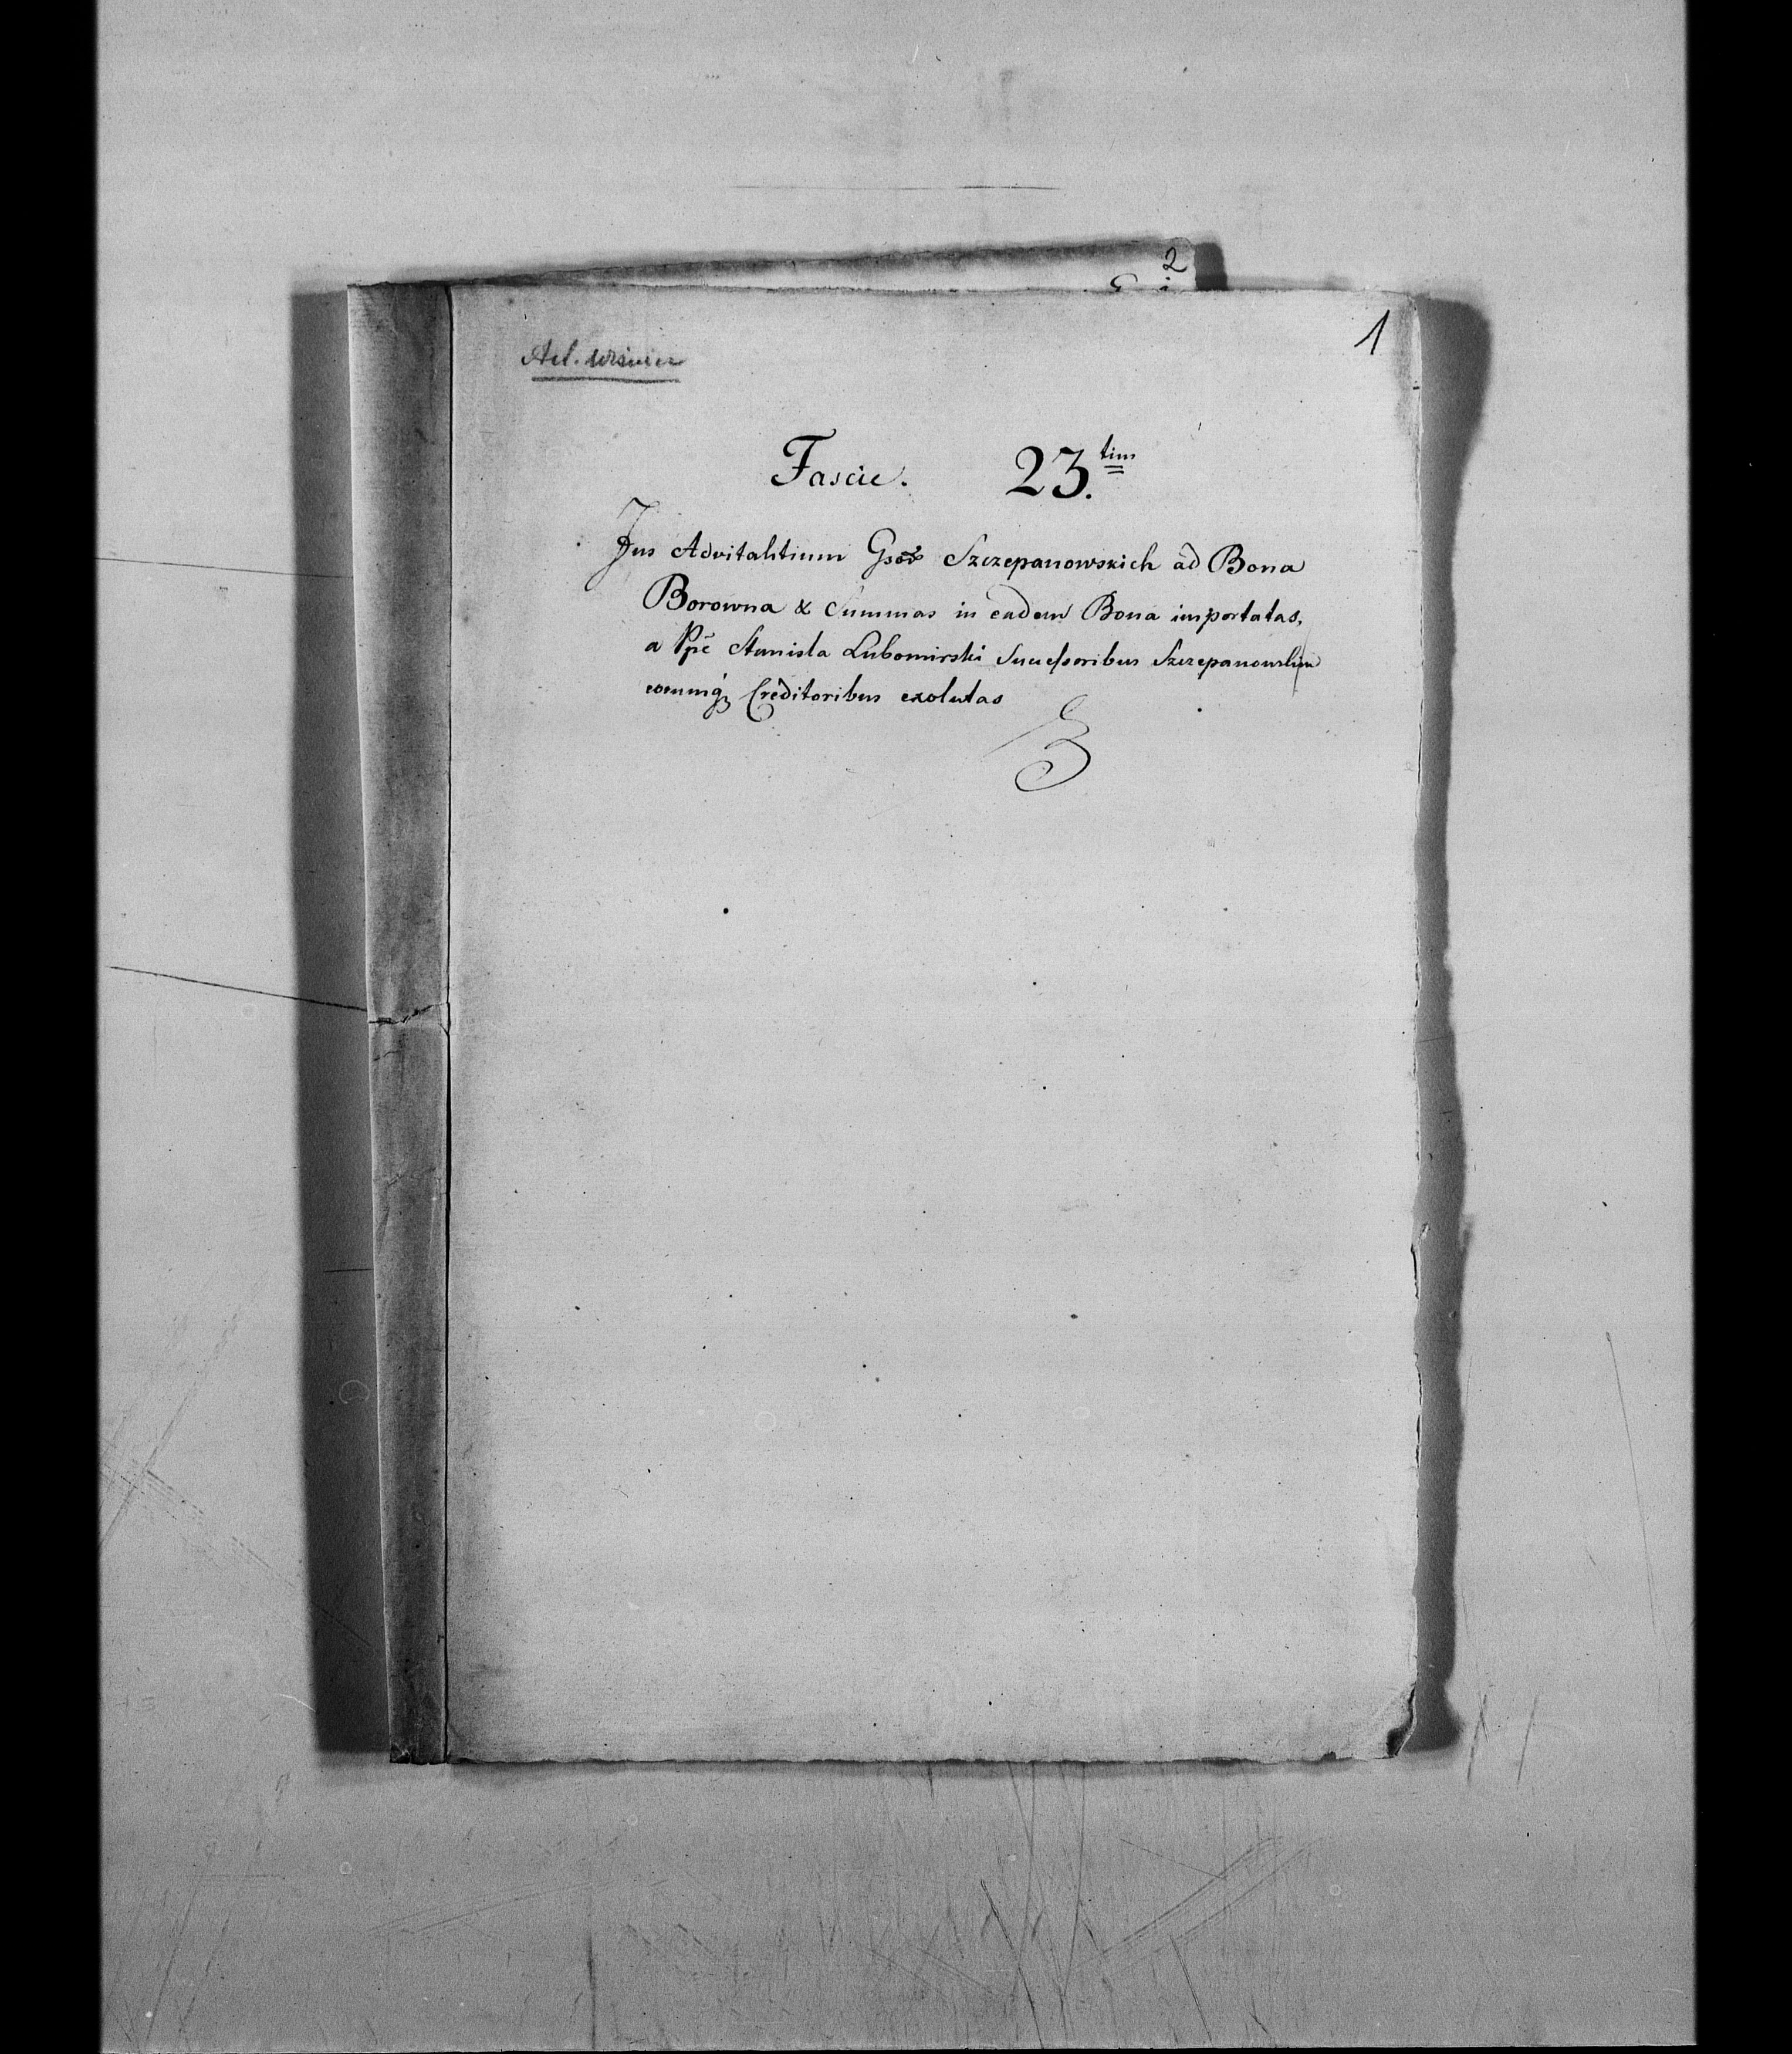 2
1
Ad. Wiśnicz
Fascic. 23.tim
Jus Advitalitium Gsor Szczepanowskich ad Bona
Borowna & Summas in eadem Bona importatas,
a Ppe Stanisla Lubomirski Successoribus Szczepanowskim
eorumq3 Creditoribus exolutas